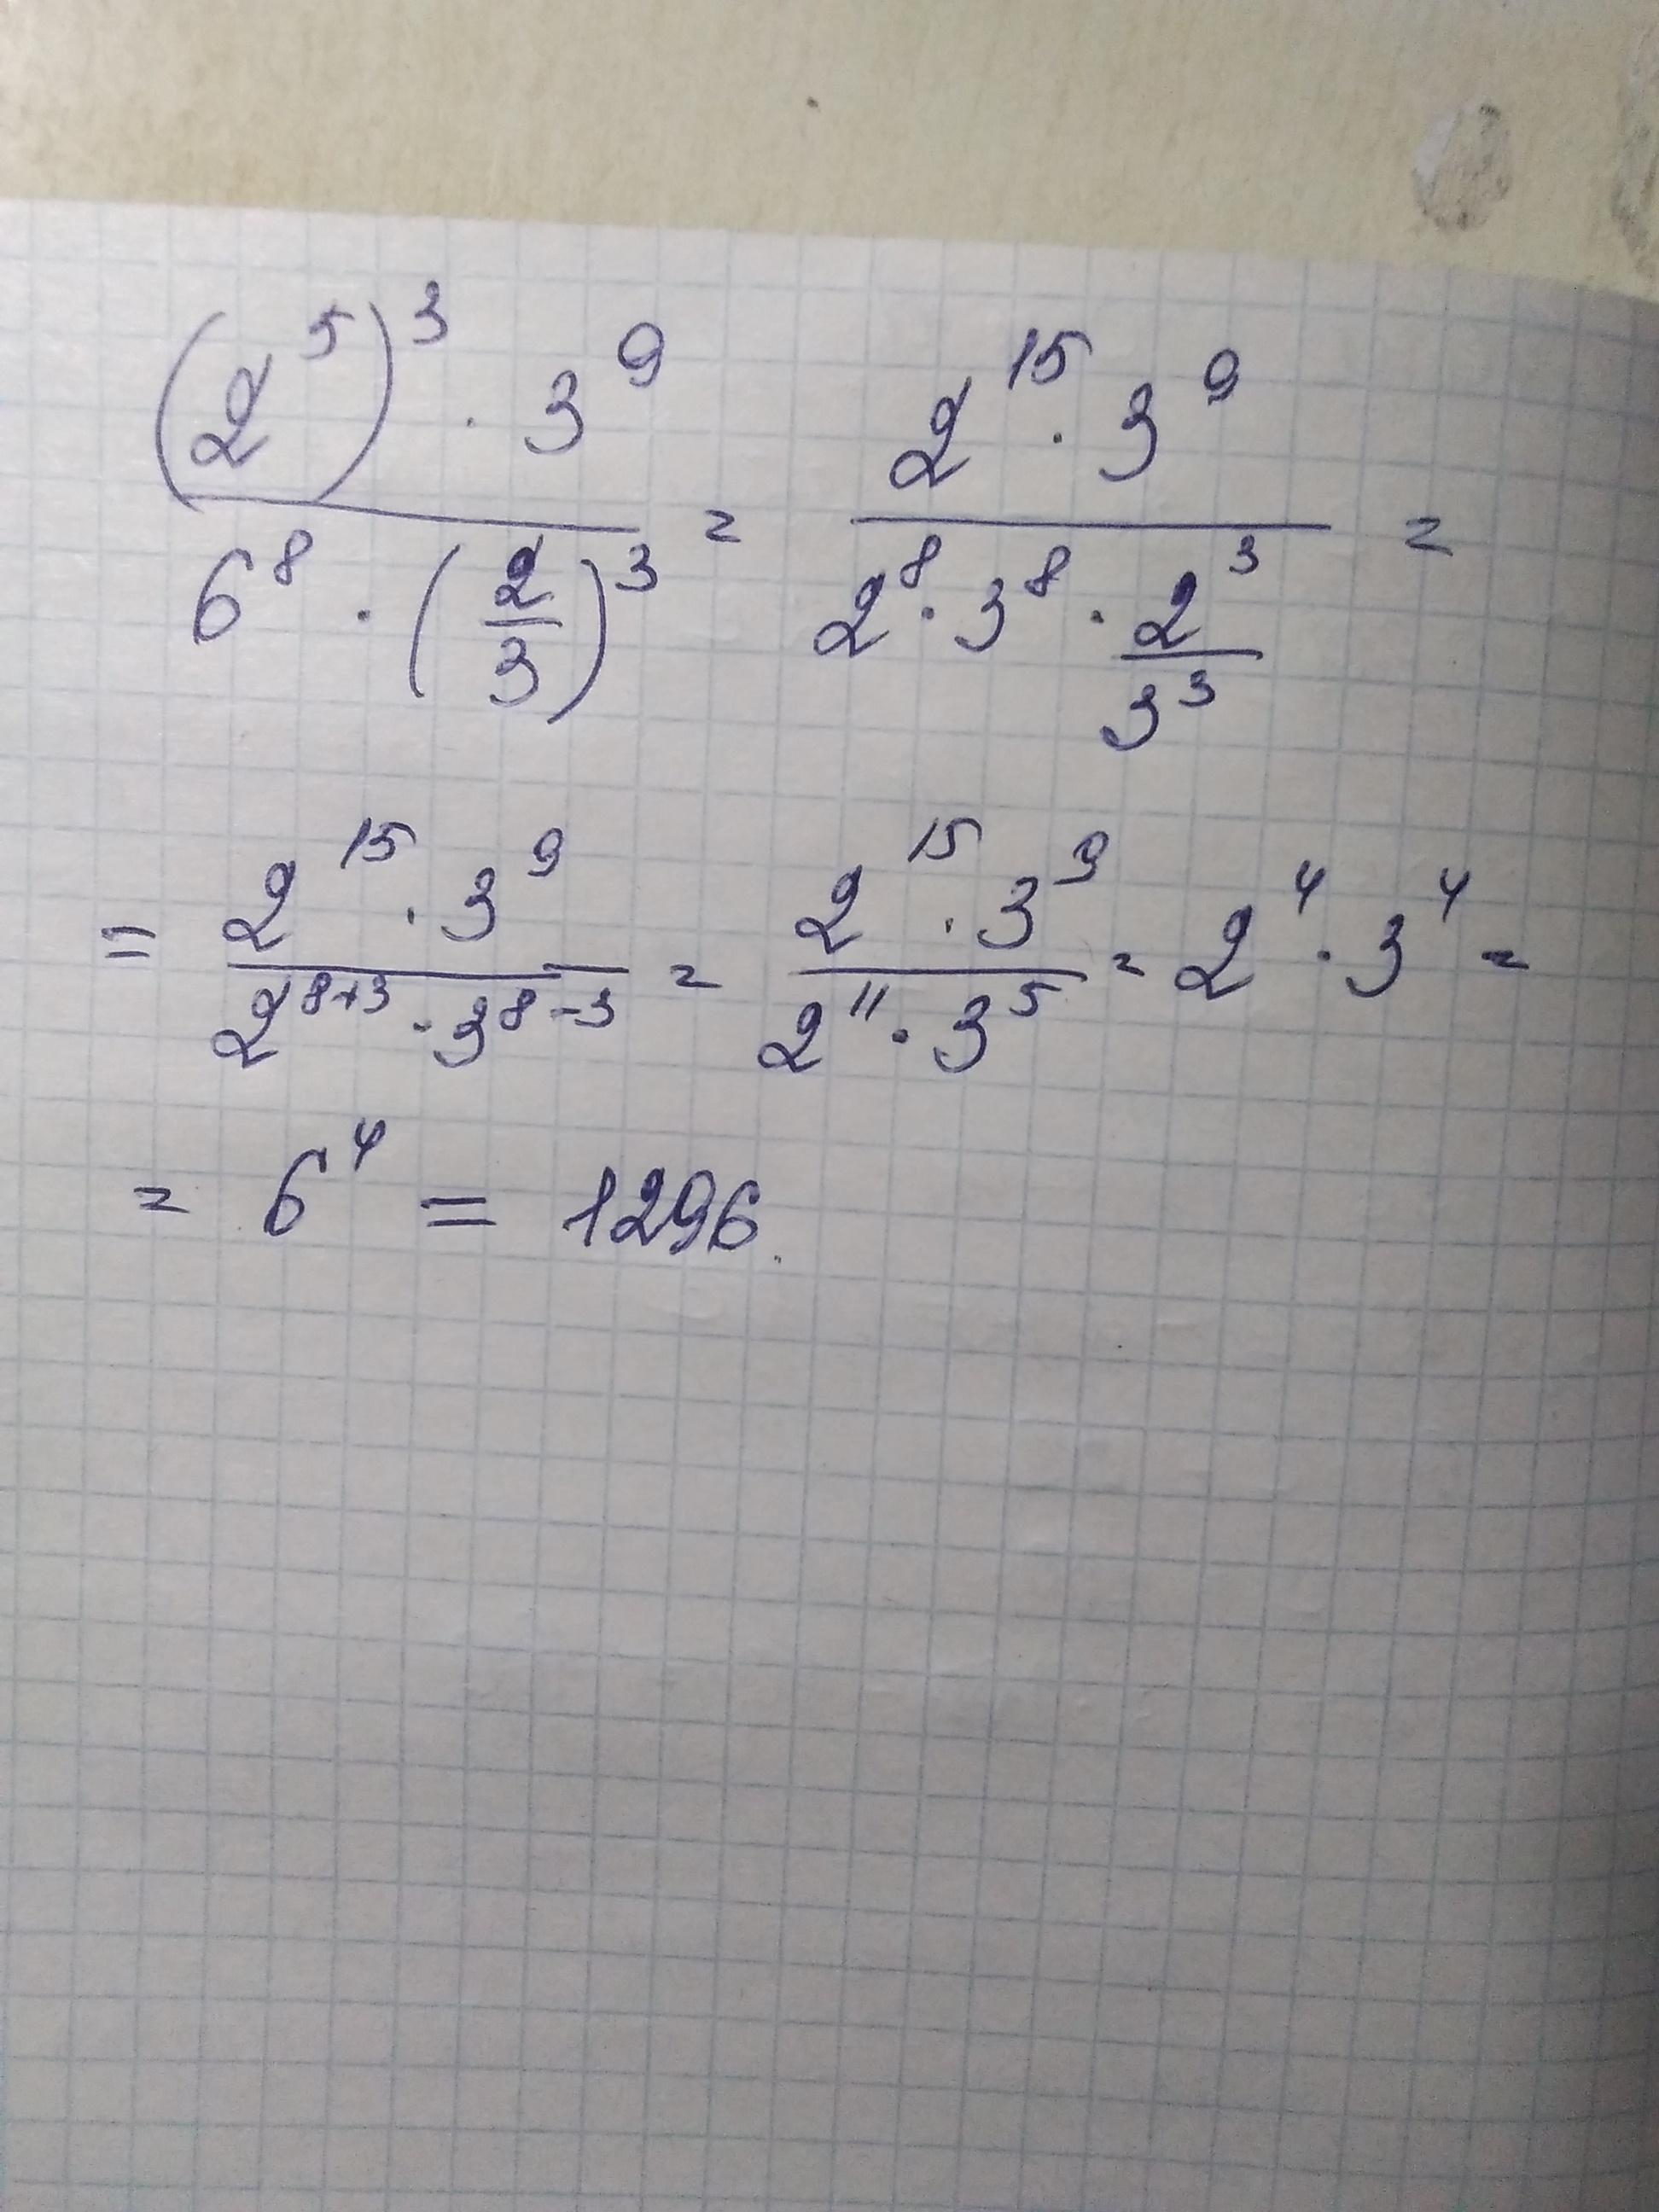 (2^5)^3 · 3^9 / 6^8 · (2/3)^3 = 2^15 · 3^9 / 2^8 · 3^8 · 2^3/3^3 =
= 2^15 · 3^9 / 2^8+3 · 3^8-3 = 2^15 · 3^9 / 2^11 · 3^5 = 2^4 · 3^4 =
= 6^4 = 1296.